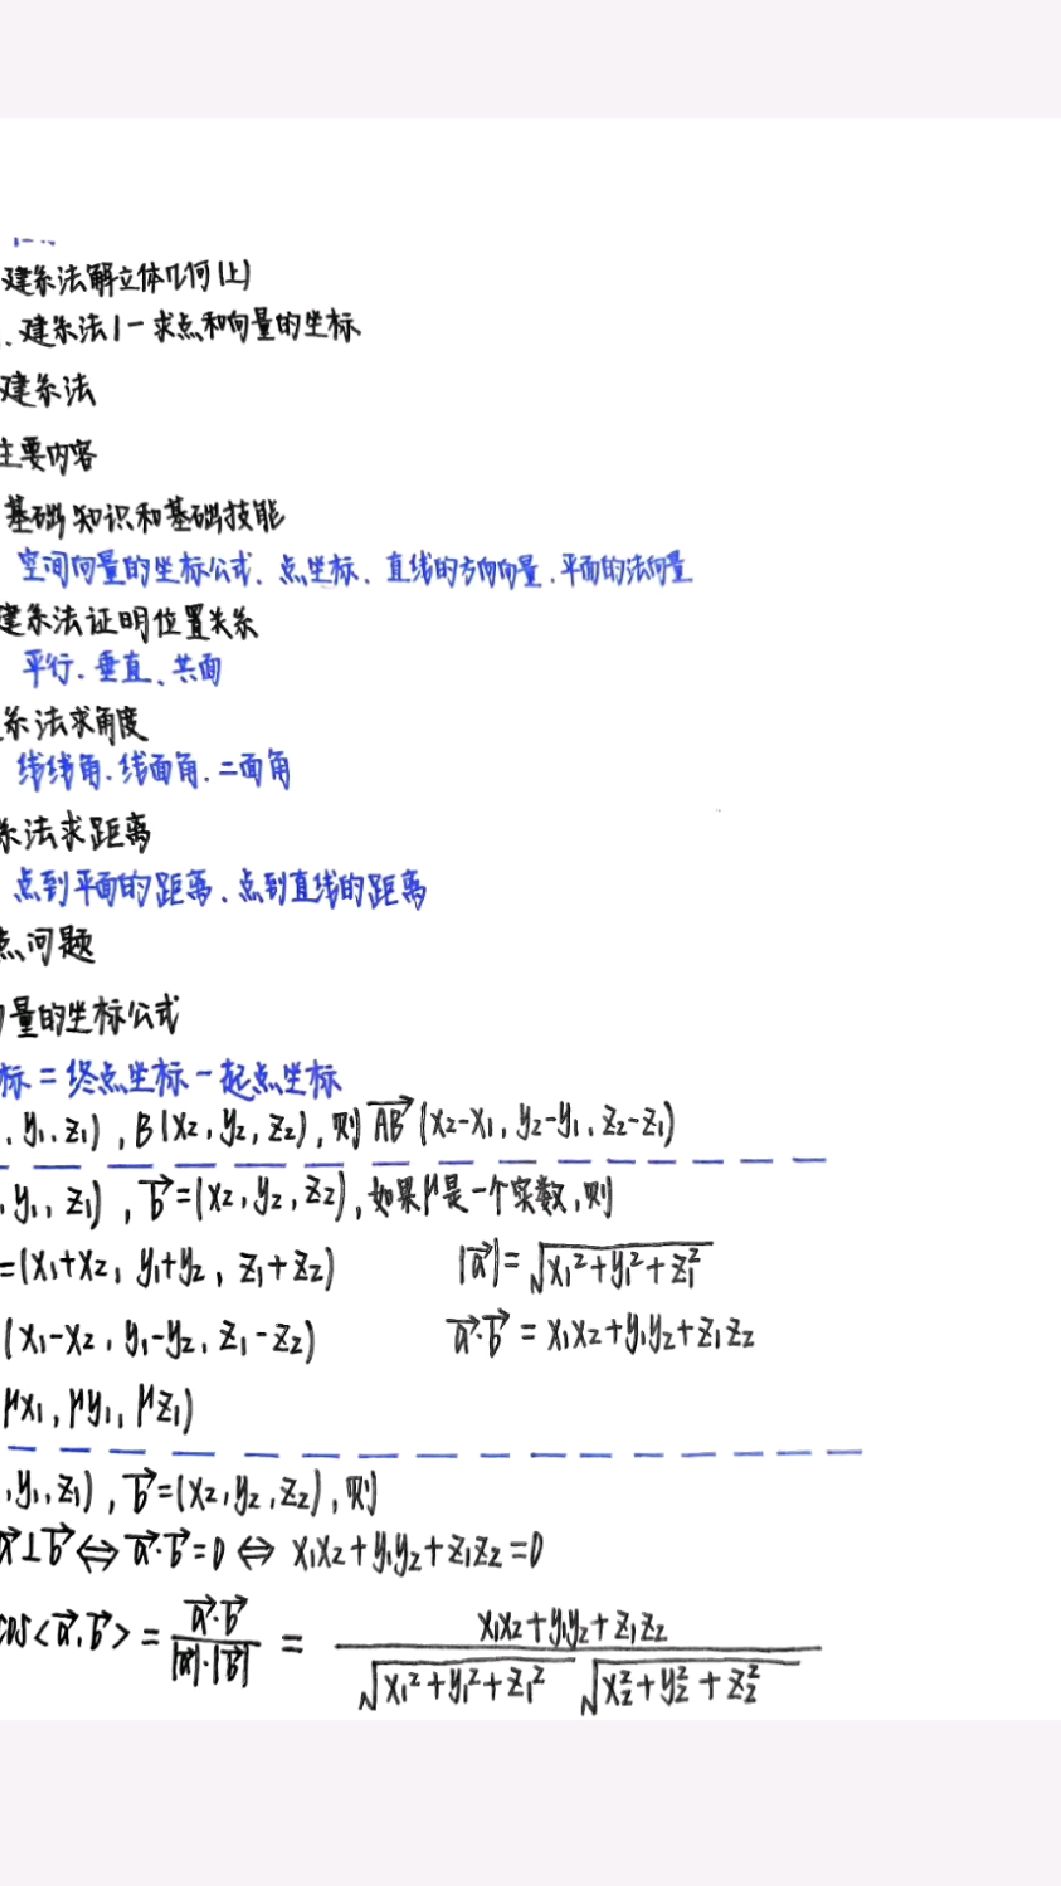 建系法解立体几何(上)
、建系法1-求点和向量的坐标
建系法
主要内容
基础知识和基础技能
空间向量的坐标公式、点坐标、直线的方向向量、平面的法向量
建系法证明位置关系
平行、垂直、共面
系法求角度
线线角、线面角、二面角
系法求距离
点到平面的距离、点到直线的距离
点问题
量的坐标公式
标=终点坐标-起点坐标
, y₁, z₁), B(x₂, y₂, z₂), 则 $\overrightarrow{AB}$(x₂-x₁, y₂-y₁, z₂-z₁)
, y₁, z₁), $\vec{b}$=(x₂, y₂, z₂), 如果μ是一个实数,则
=(x₁+x₂, y₁+y₂, z₁+z₂) $|\vec{a}|=\sqrt{x_1^2+y_1^2+z_1^2}$
(x₁-x₂, y₁-y₂, z₁-z₂) $\vec{a}·\vec{b}$ = x₁x₂+y₁y₂+z₁z₂
μx₁, μy₁, μz₁)
, y₁, z₁), $\vec{b}$=(x₂, y₂, z₂), 则
$\vec{a}⊥\vec{b}$⇔$\vec{a}·\vec{b}$=0⇔ x₁x₂+y₁y₂+z₁z₂=0
cos<$\vec{a}$,$\vec{b}$> = $\frac{\vec{a}·\vec{b}}{|\vec{a}|·|\vec{b}|}$ = $\frac{x_1x_2+y_1y_2+z_1z_2}{\sqrt{x_1^2+y_1^2+z_1^2}\sqrt{x_2^2+y_2^2+z_2^2}}$